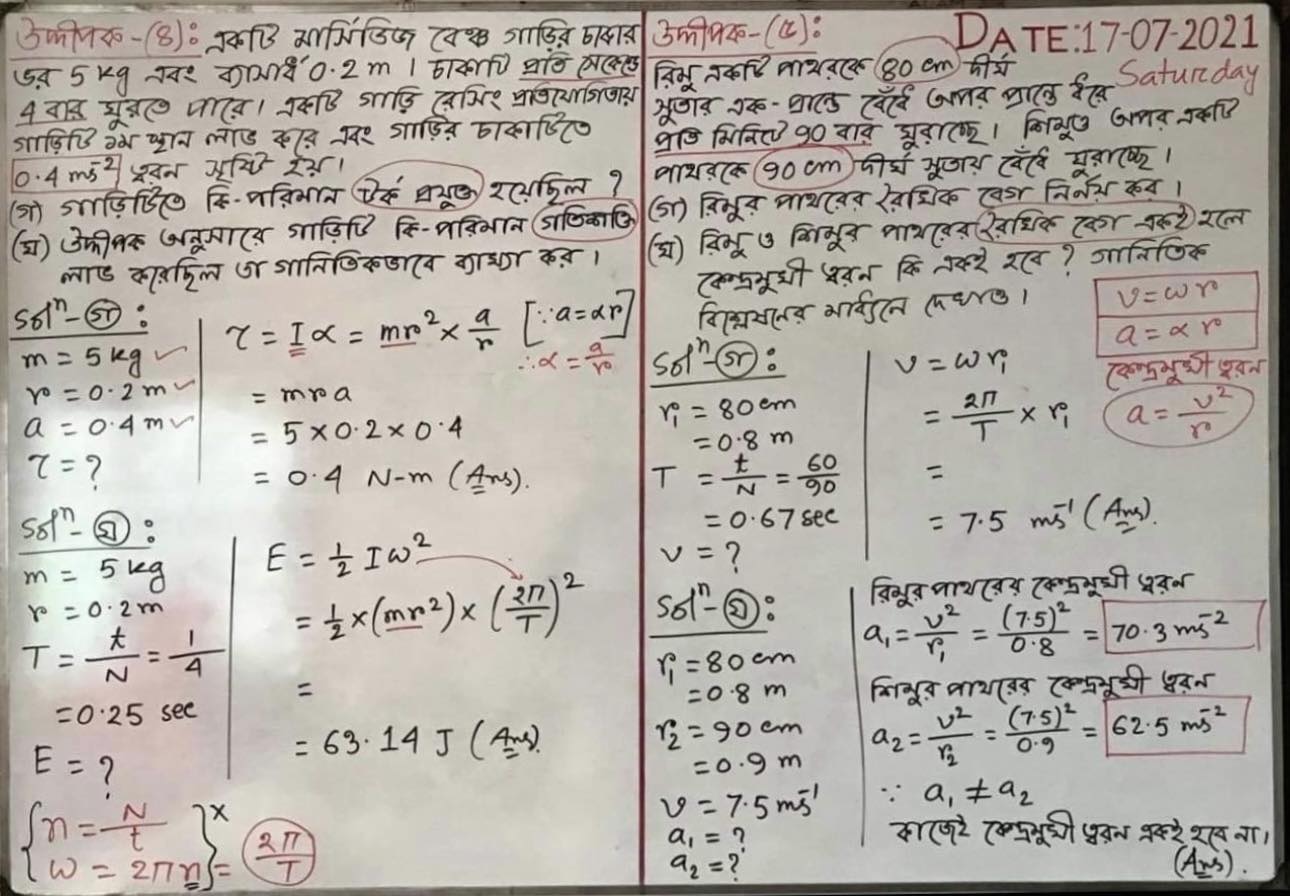 উদ্দীপক-(৪): একটি মার্সিডিজ বেঞ্চ গাড়ির চাকার
ভর 5 kg এবং ব্যাসার্ধ 0.2 m । চাকাটি প্রতি সেকেন্ডে
4 বার ঘুরতে পারে। একটি গাড়ি রেসিং প্রতিযোগিতায়
গাড়িটি ১ম স্থান লাভ করে এবং গাড়ির চাকাটিতে
0.4 ms⁻² ত্বরন সৃষ্টি হয়।
(গ) গাড়িটিতে কি-পরিমান টর্ক প্রযুক্ত হয়েছিল ?
(ঘ) উদ্দীপক অনুসারে গাড়িটি কি-পরিমান গতিশক্তি
লাভ করেছিল তা গানিতিকভাবে ব্যাখ্যা কর।
Solⁿ-(গ):
m = 5 kg ✓
r = 0.2 m ✓
a = 0.4 m ✓
τ = ?
τ = Iα = mr² × a/r [∵ a = αr]
∴ α = a/r
= mra
= 5 × 0.2 × 0.4
= 0.4 N-m (Ans).
Solⁿ-(ঘ):
m = 5 kg
r = 0.2 m
T = t/N = 1/4
= 0.25 sec
E = ?
E = ½ Iω²
= ½ × (mr²) × (2π/T)²
=
= 63.14 J (Ans).
{n = N/t
ω = 2πn}ˣ = 2π/T
উদ্দীপক-(৫):
DATE:17-07-2021
Saturday
রিমু একটি পাথরকে 80 cm দীর্ঘ
সুতার এক-প্রান্তে বেঁধে অপর প্রান্তে ধরে
প্রতি মিনিটে 90 বার ঘুরাচ্ছে। শিমুও অপর একটি
পাথরকে 90 cm দীর্ঘ সুতায় বেঁধে ঘুরাচ্ছে।
(গ) রিমুর পাথরের রৈখিক বেগ নির্নয় কর।
(ঘ) রিমু ও শিমুর পাথরের রৈখিক বেগ একই হলে
কেন্দ্রমুখী ত্বরন কি একই হবে ? গানিতিক
বিশ্লেষনের মাধ্যমে দেখাও।
v = ωr
a = αr
কেন্দ্রমুখী ত্বরন
a = v²/r
Solⁿ-(গ):
r₁ = 80 cm
= 0.8 m
T = t/N = 60/90
= 0.67 sec
v = ?
v = ωr₁
= 2π/T × r₁
=
= 7.5 ms⁻¹ (Ans).
Solⁿ-(ঘ):
r₁ = 80 cm
= 0.8 m
r₂ = 90 cm
= 0.9 m
v = 7.5 ms⁻¹
a₁ = ?
a₂ = ?
রিমুর পাথরের কেন্দ্রমুখী ত্বরন
a₁ = v²/r₁ = (7.5)²/0.8 = 70.3 ms⁻²
শিমুর পাথরের কেন্দ্রমুখী ত্বরন
a₂ = v²/r₂ = (7.5)²/0.9 = 62.5 ms⁻²
∵ a₁ ≠ a₂
কাজেই কেন্দ্রমুখী ত্বরন একই হবে না।
(Ans).